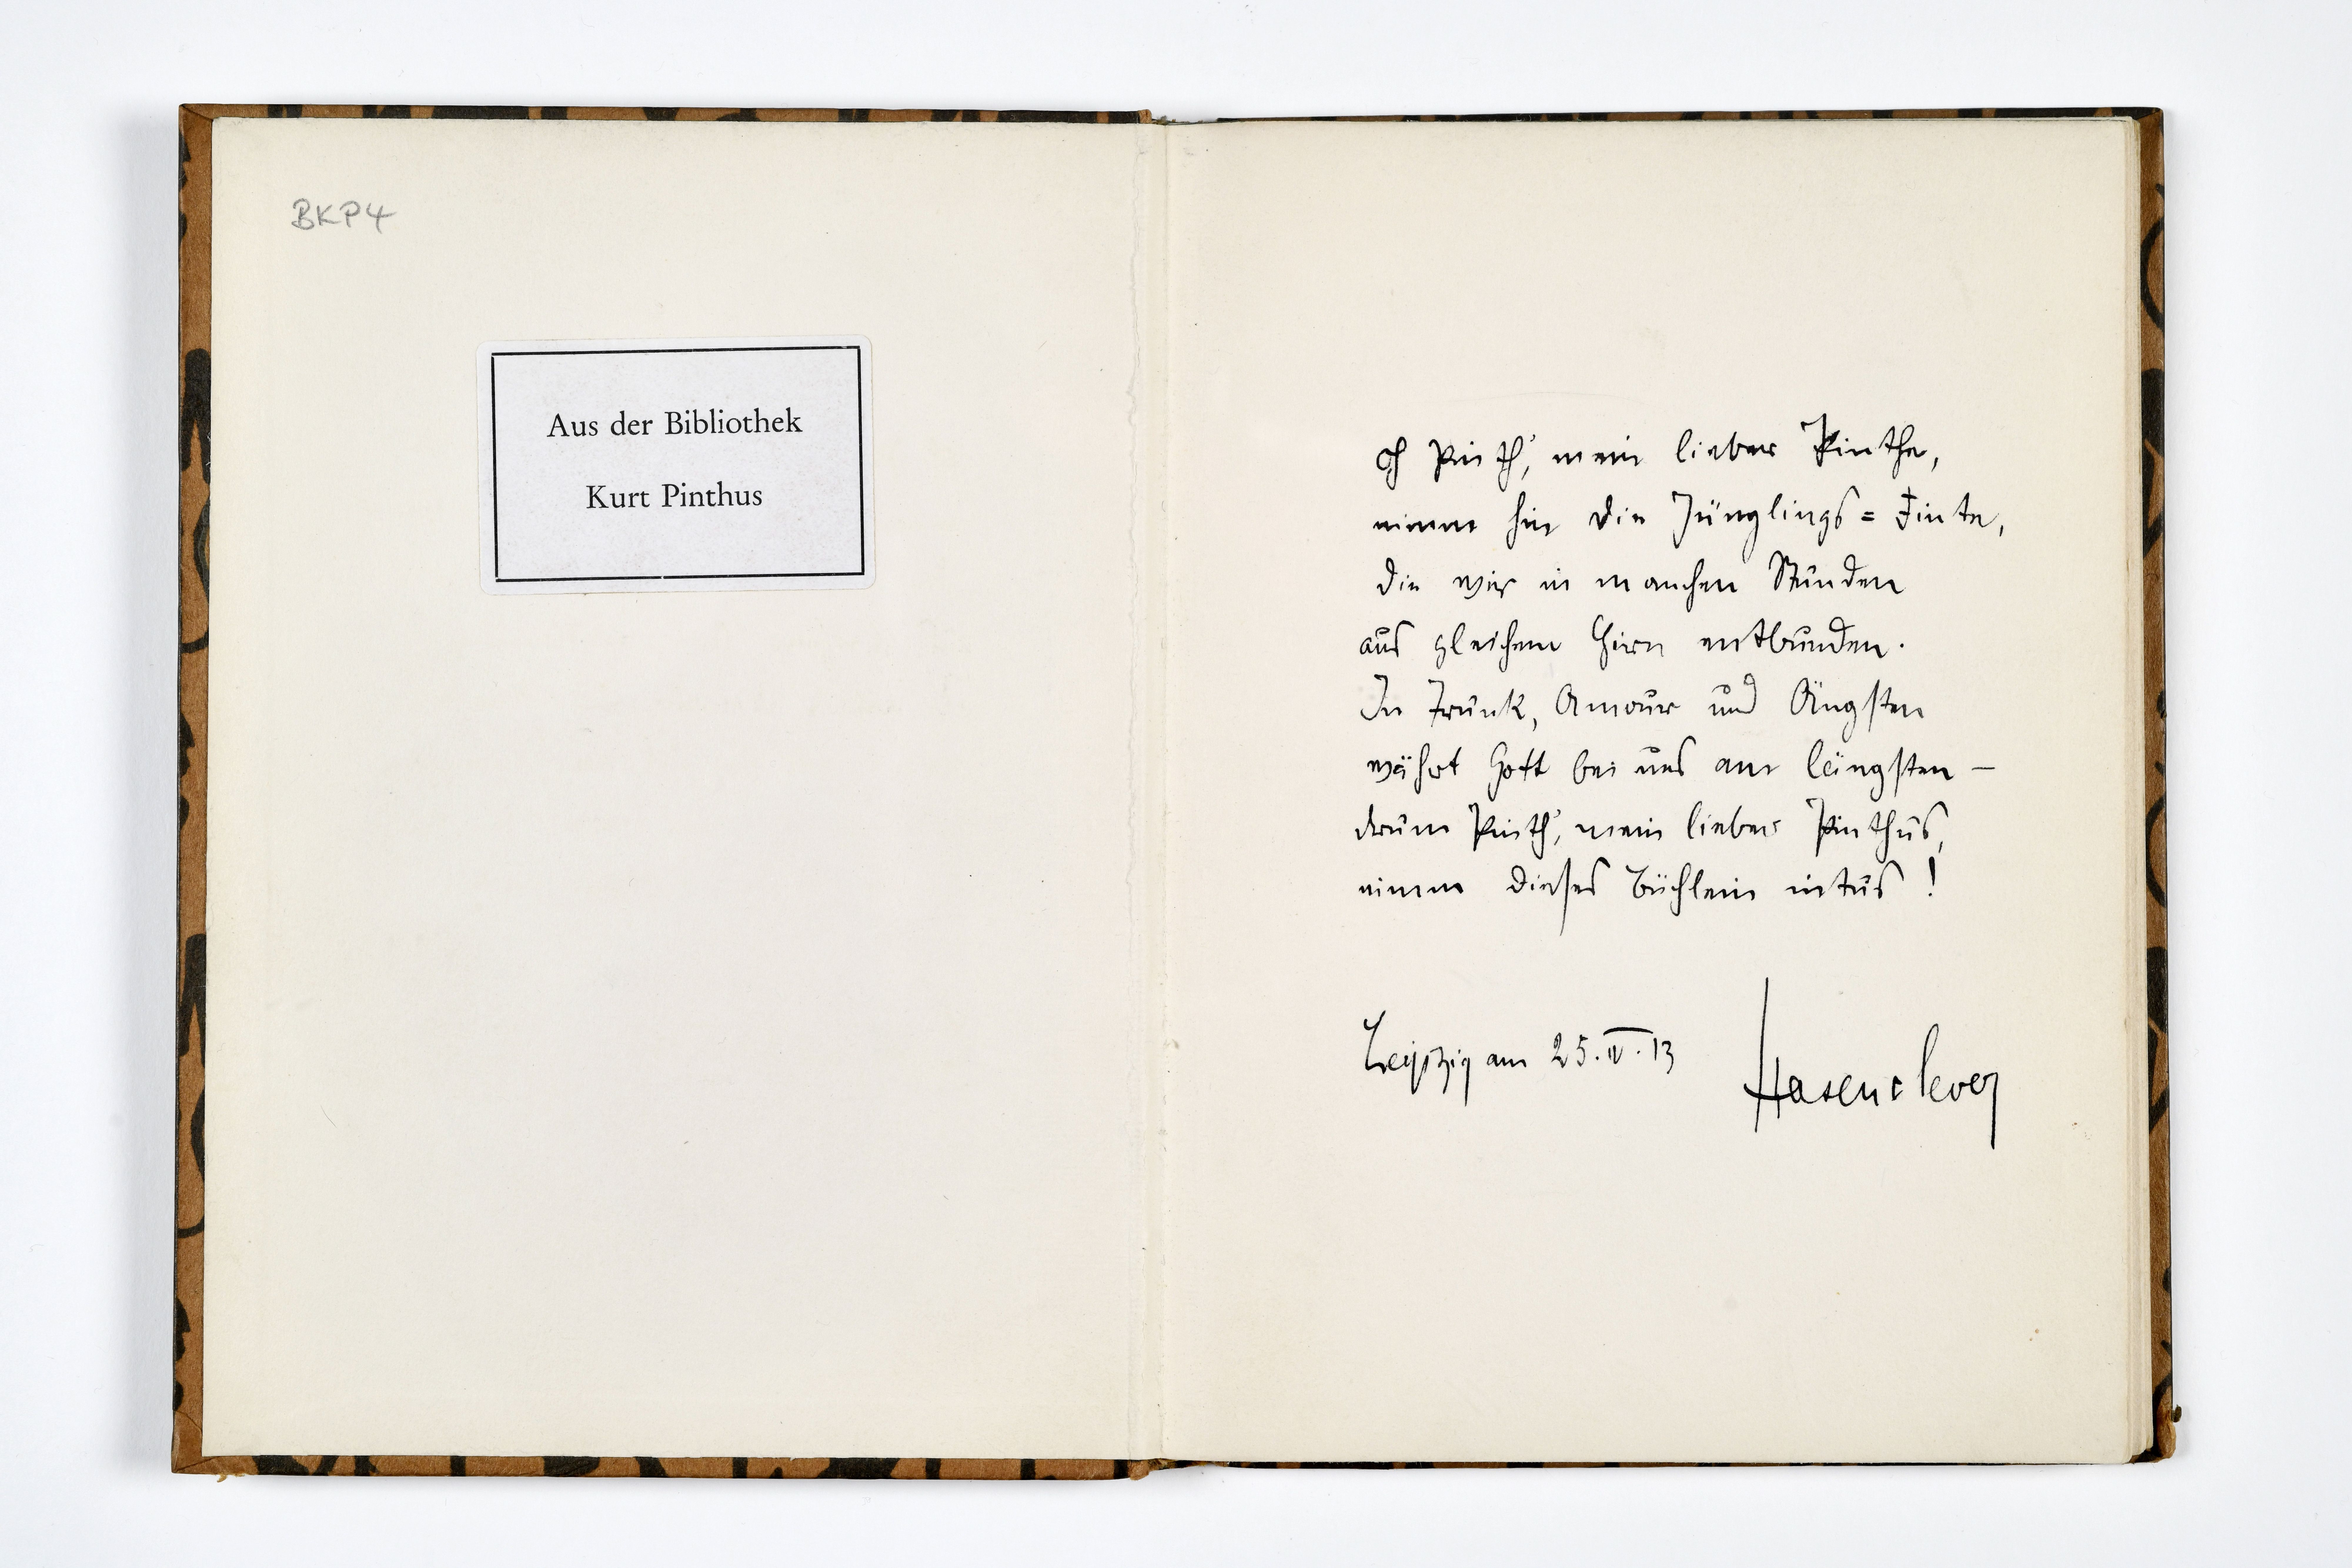 BKP4
Aus der Bibliothek
Kurt Pinthus
Oh Pinth', mein lieber Pinthe,
nimm hin die Jünglings=Finte,
die wir in manchen Stunden
aus gleichem Hirn entbunden.
In Trunk, Amour und Ängsten
währt Gott bei uns am längsten –
drum Pinth', mein lieber Pinthus,
nimm dieses Büchlein intus!
Leipzig am 25.IV.13
Hasenclever